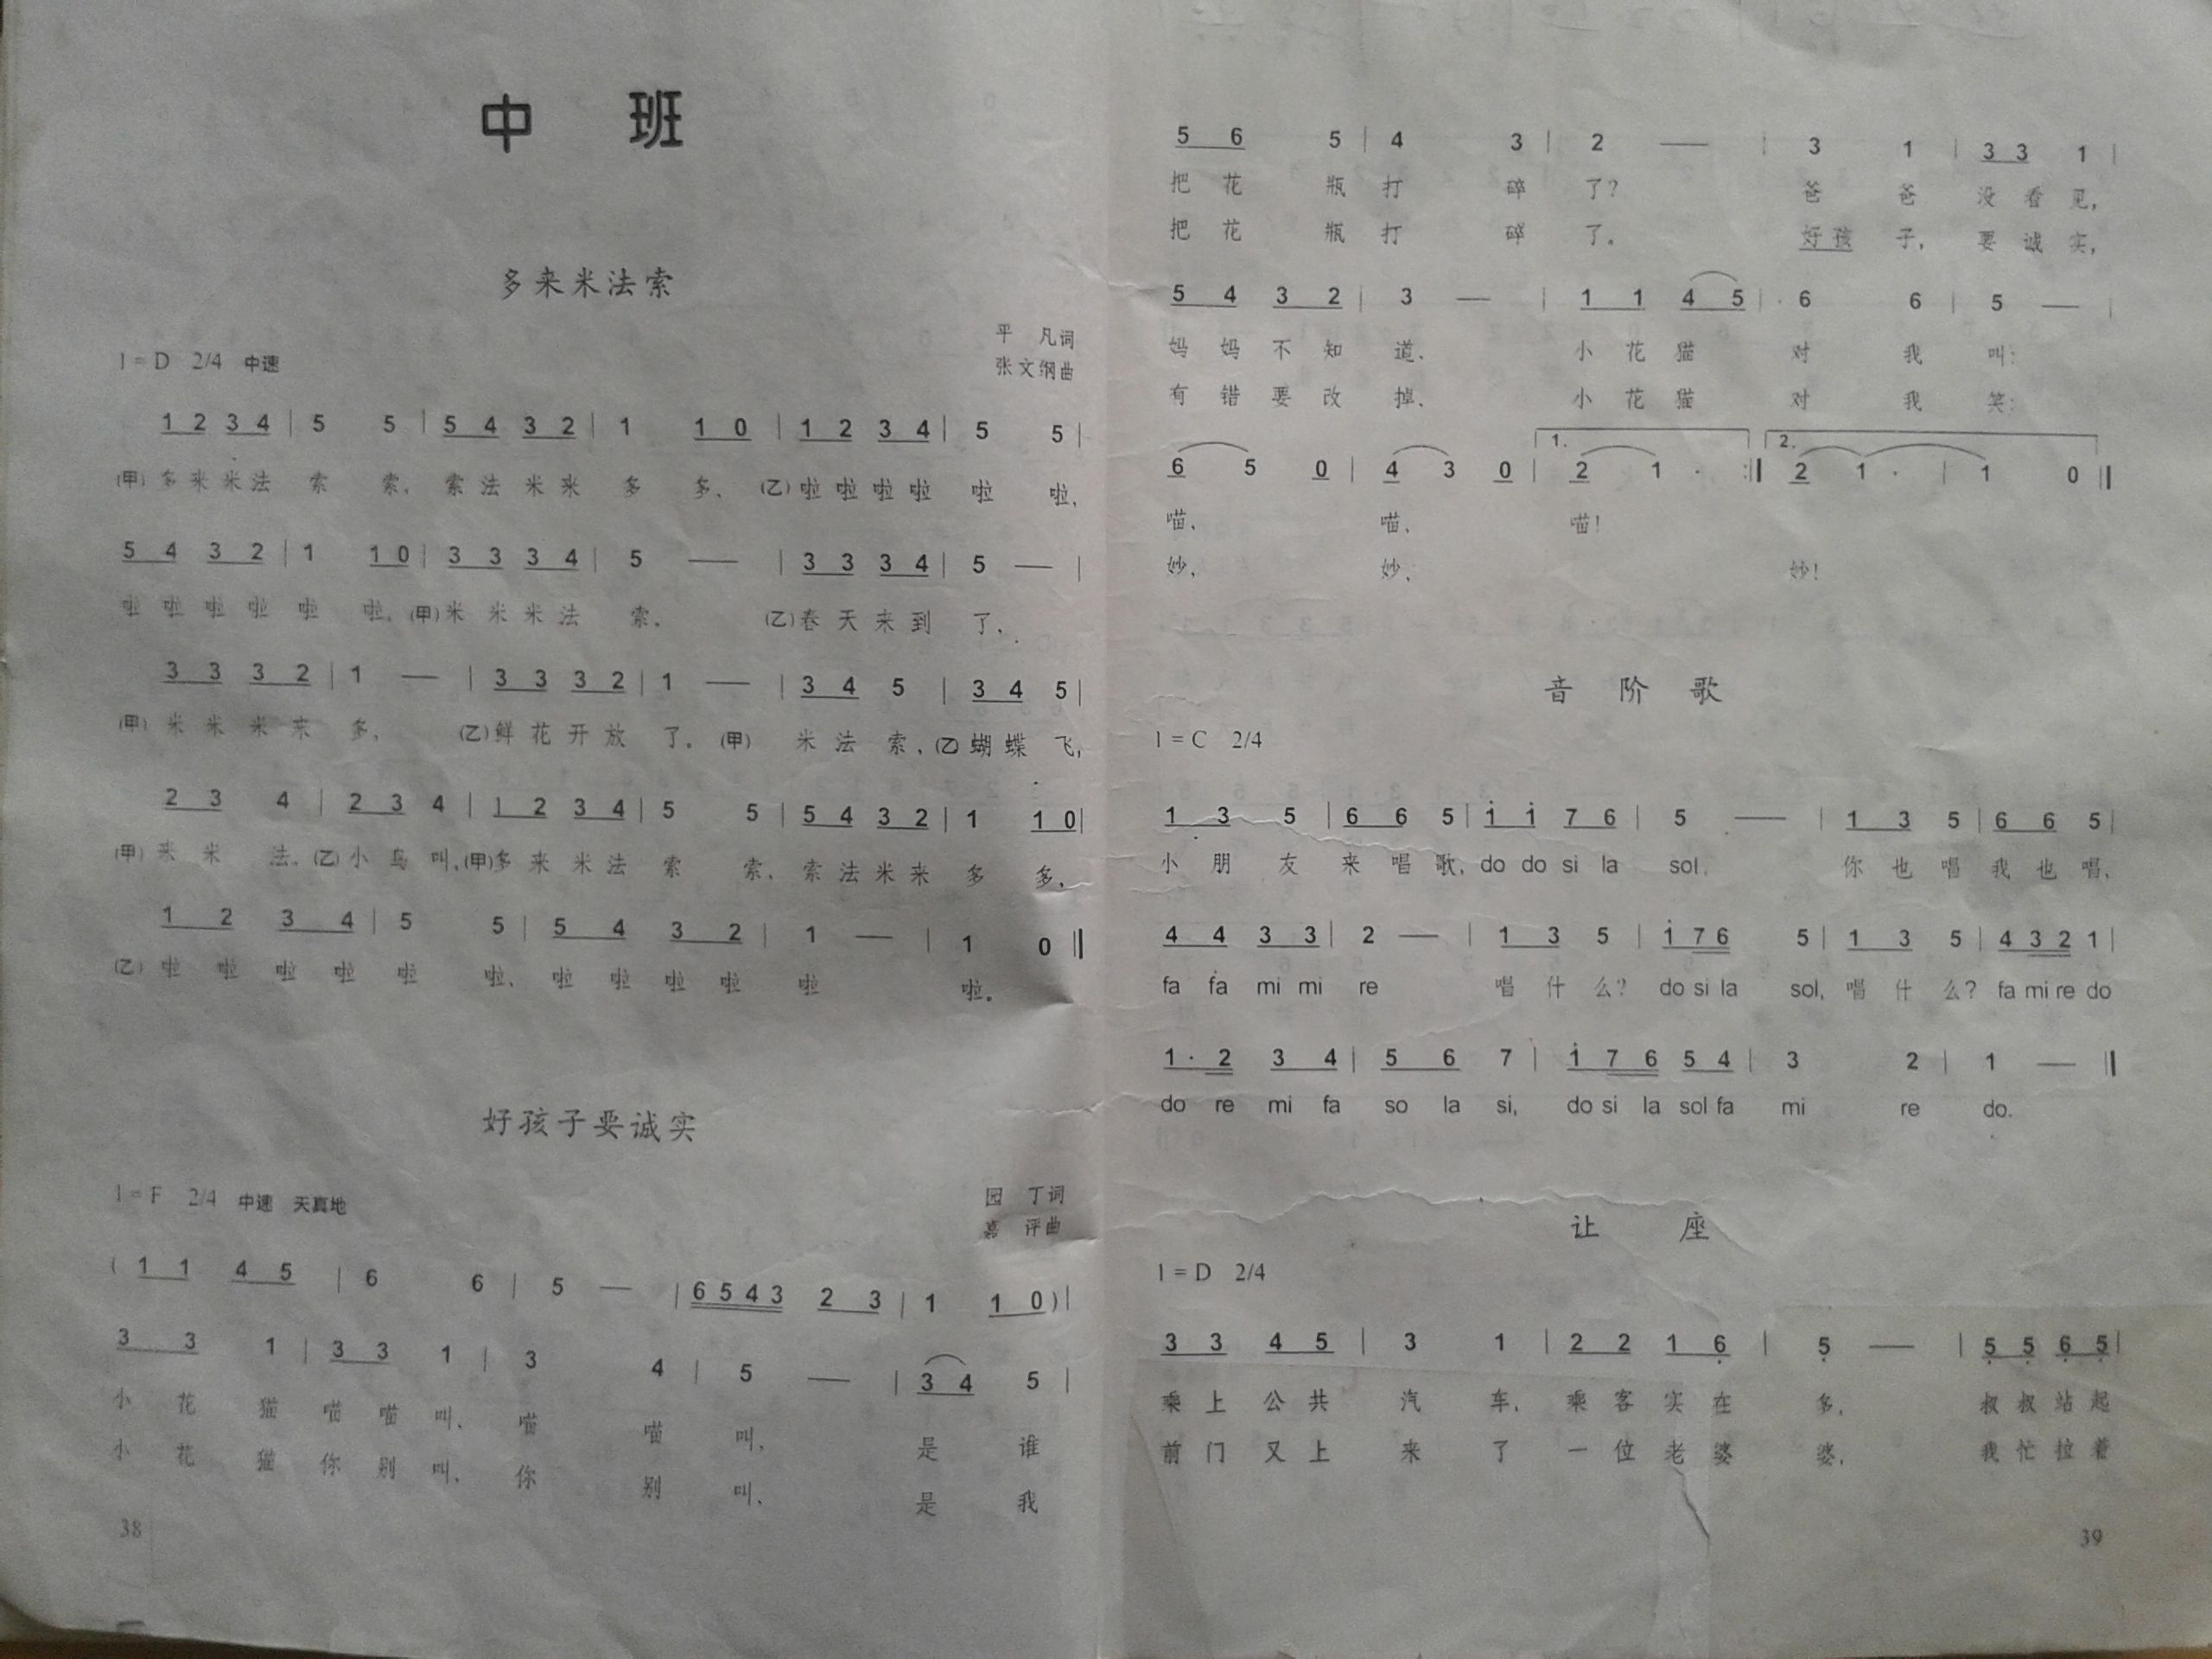 中 班
多来米法索
平 凡词
1 = D 2/4 中速
张文纲曲
1 2 3 4 | 5 5 | 5 4 3 2 | 1 1 0 | 1 2 3 4 | 5 5 |
(甲) 多来米法 索 索, 索法米来 多 多, (乙) 啦啦啦啦 啦 啦,
5 4 3 2 | 1 1 0 | 3 3 3 4 | 5 — | 3 3 3 4 | 5 — |
啦啦啦啦 啦 啦. (甲) 米米米法 索. (乙) 春天来到 了.
3 3 3 2 | 1 — | 3 3 3 2 | 1 — | 3 4 5 | 3 4 5 |
(甲) 米米米来 多, (乙) 鲜花开放 了. (甲) 米法索, (乙) 蝴蝶飞,
2 3 4 | 2 3 4 | 1 2 3 4 | 5 5 | 5 4 3 2 | 1 1 0 |
(甲) 来米法. (乙) 小鸟叫, (甲) 多来米法 索 索, 索法米来 多 多,
1 2 3 4 | 5 5 | 5 4 3 2 | 1 — | 1 0 ‖
(乙) 啦啦啦啦 啦 啦, 啦啦啦啦 啦 啦。
好孩子要诚实
1 = F 2/4 中速 天真地
园 丁词
嘉 评曲
( 1 1 4 5 | 6 6 | 5 — | 6 5 4 3 2 3 | 1 1 0 ) |
3 3 1 | 3 3 1 | 3 4 | 5 — | 3 4 5 |
小花猫 喵喵叫, 喵 喵 叫, 是 谁
小花猫 你别叫, 你 别 叫, 是 我
38
5 6 5 | 4 3 | 2 — | 3 1 | 3 3 1 |
把花瓶 打 碎 了? 爸 爸 没看见,
把花瓶 打 碎 了。 好孩 子, 要诚实,
5 4 3 2 | 3 — | 1 1 4 5 | 6 6 | 5 — |
妈妈不知 道, 小花猫 对 我 叫:
有错要改 掉, 小花猫 对 我 笑:
1. 2.
6 5 0 | 4 3 0 | 2 1 · :‖ 2 1 · | 1 0 ‖
喵, 喵, 喵!
妙, 妙, 妙!
音 阶 歌
1 = C 2/4
1 3 5 | 6 6 5 | i i 7 6 | 5 — | 1 3 5 | 6 6 5 |
小朋友 来唱歌, do do si la sol, 你也唱 我也唱,
4 4 3 3 | 2 — | 1 3 5 | i 7 6 5 | 1 3 5 | 4 3 2 1 |
fa fa mi mi re 唱什么? do si la sol, 唱什么? fa mi re do
1 · 2 3 4 | 5 6 7 | i 7 6 5 4 | 3 2 | 1 — ‖
do re mi fa so la si, do si la sol fa mi re do.
让 座
1 = D 2/4
3 3 4 5 | 3 1 | 2 2 1 6̣ | 5̣ — | 5̣ 5̣ 6̣ 5̣ |
乘上公共 汽 车, 乘客实在 多, 叔叔站起
前门又上 来 了 一位老婆 婆, 我忙拉着
39